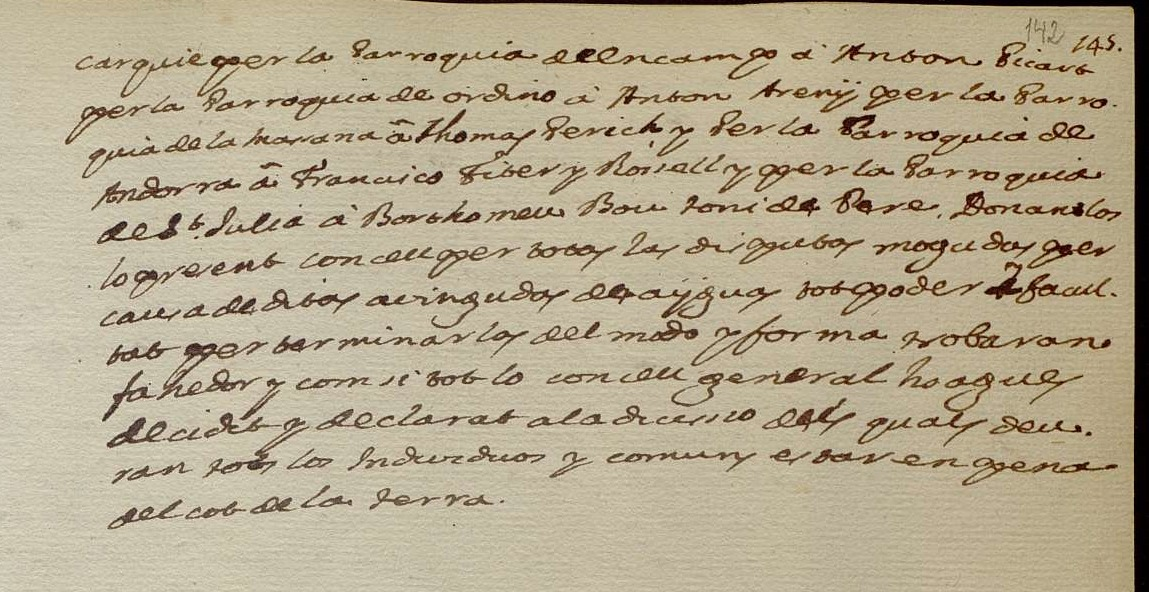 142 145.
carquie per la Parroquia de Encamp â Anton Picart
per la Parroquia de ordino â Anton Areny per la Parro-
quia de la Masana â Thomas Perich y Per la Parroquia de
Andorra â Francisco Fiter y Rosell y per la Parroquia
de St. Julia â Barthomeu Bou toni de Pere, Donantlos
lo present conceu per totas las disputas mogudas per
causa de ditas avingudas de aÿguas tot poder y facul-
tat per terminarlas del modo y forma trobaran
fahedor y com si tot lo conceu general ho agues
decidit y declarat a la dicisio dels quals deu-
ran tots los Individuos y comuns estar en pena
del cot de la terra.